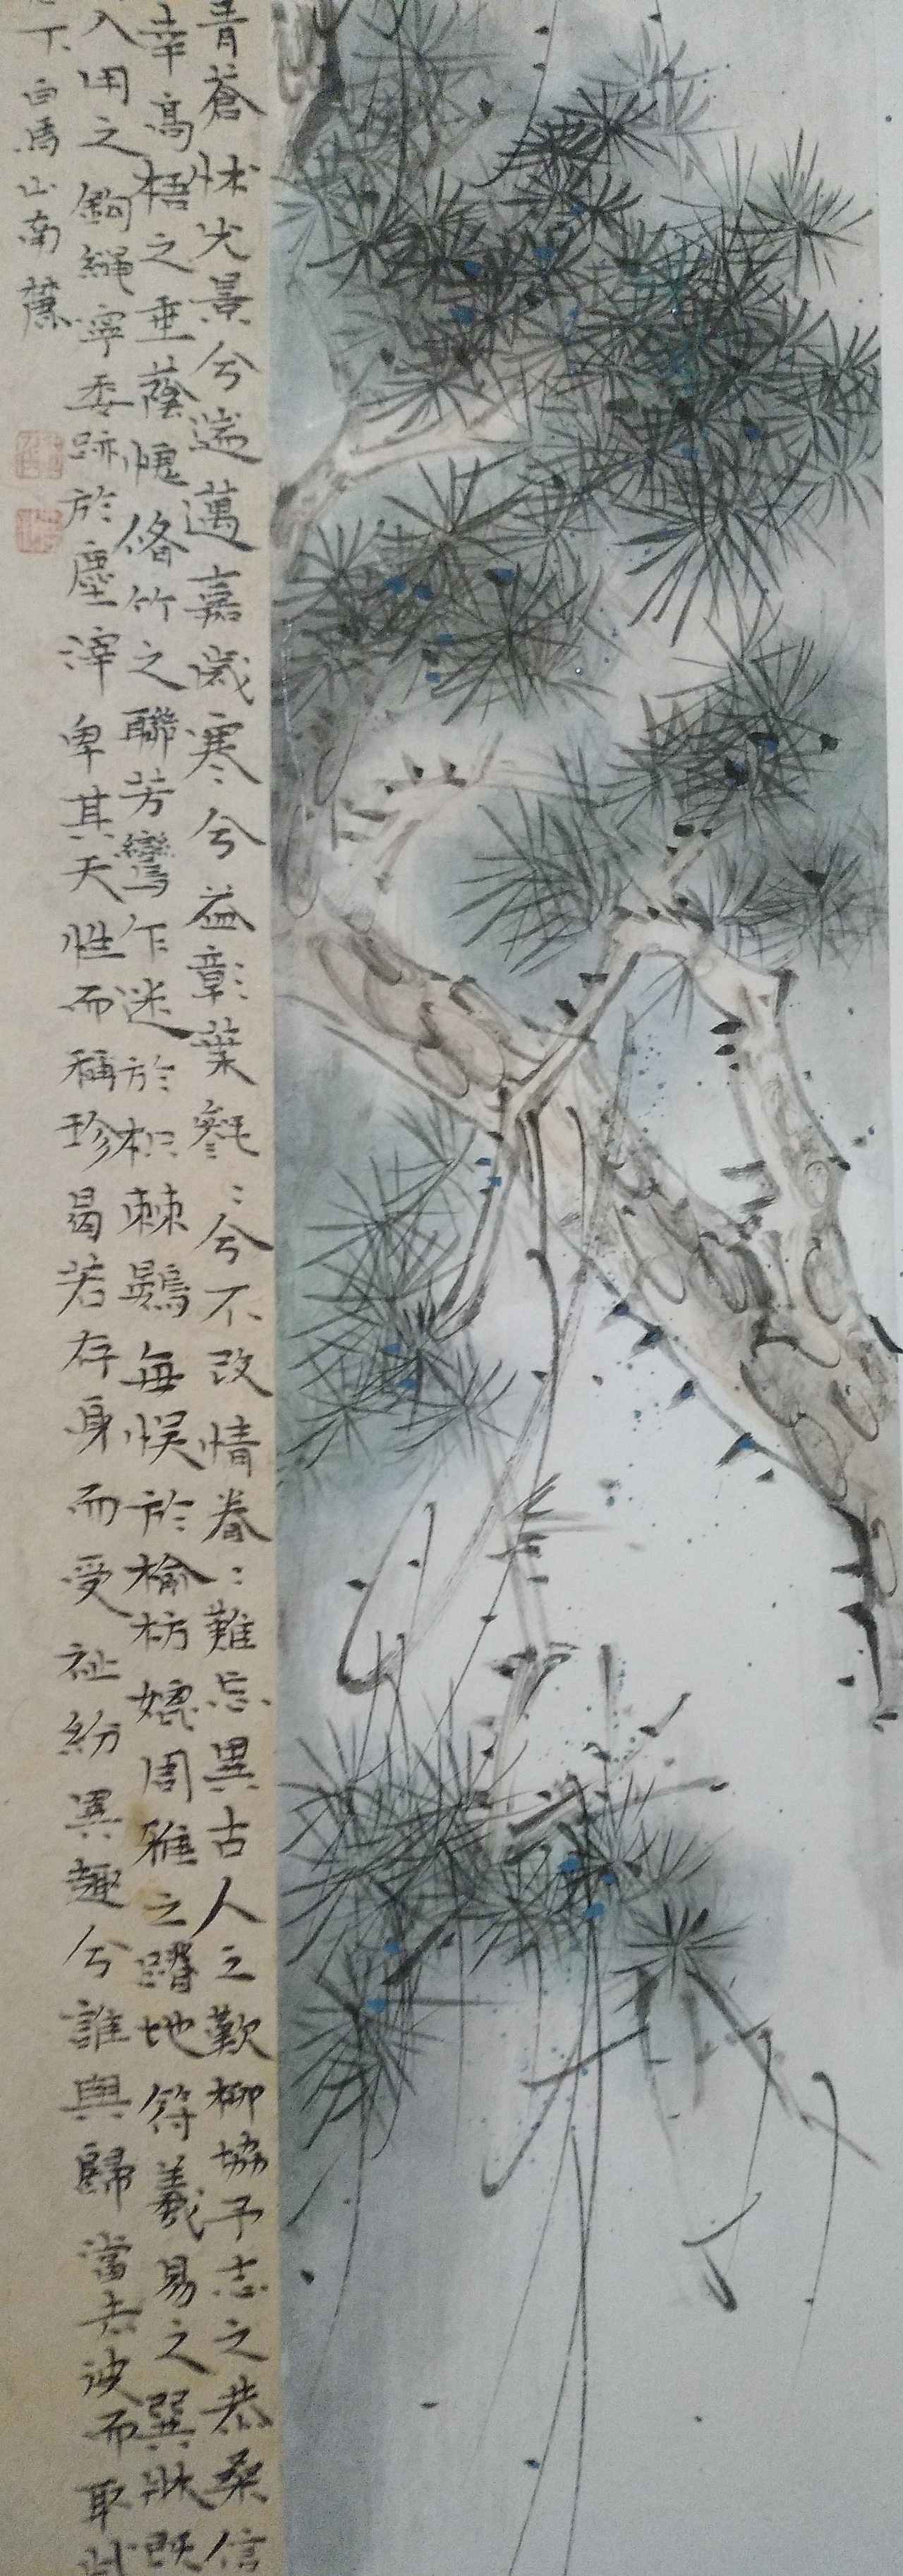 青蒼怵光景兮遄邁嘉歲寒兮益彰葉毿〻兮不改情眷〻難忘異古人之歎柳協予志之恭桑信
幸高梧之垂蔭愧脩竹之聯芳鸞乍迷於枳棘鷃每悞於榆枋媲周雅之蹐地符羲易之巽牀既
入用之鉤繩寧委跡於塵滓卑其天性而稱珍曷若存身而受祉紛異趣兮誰與歸當去彼而取此
下白馬山南麓